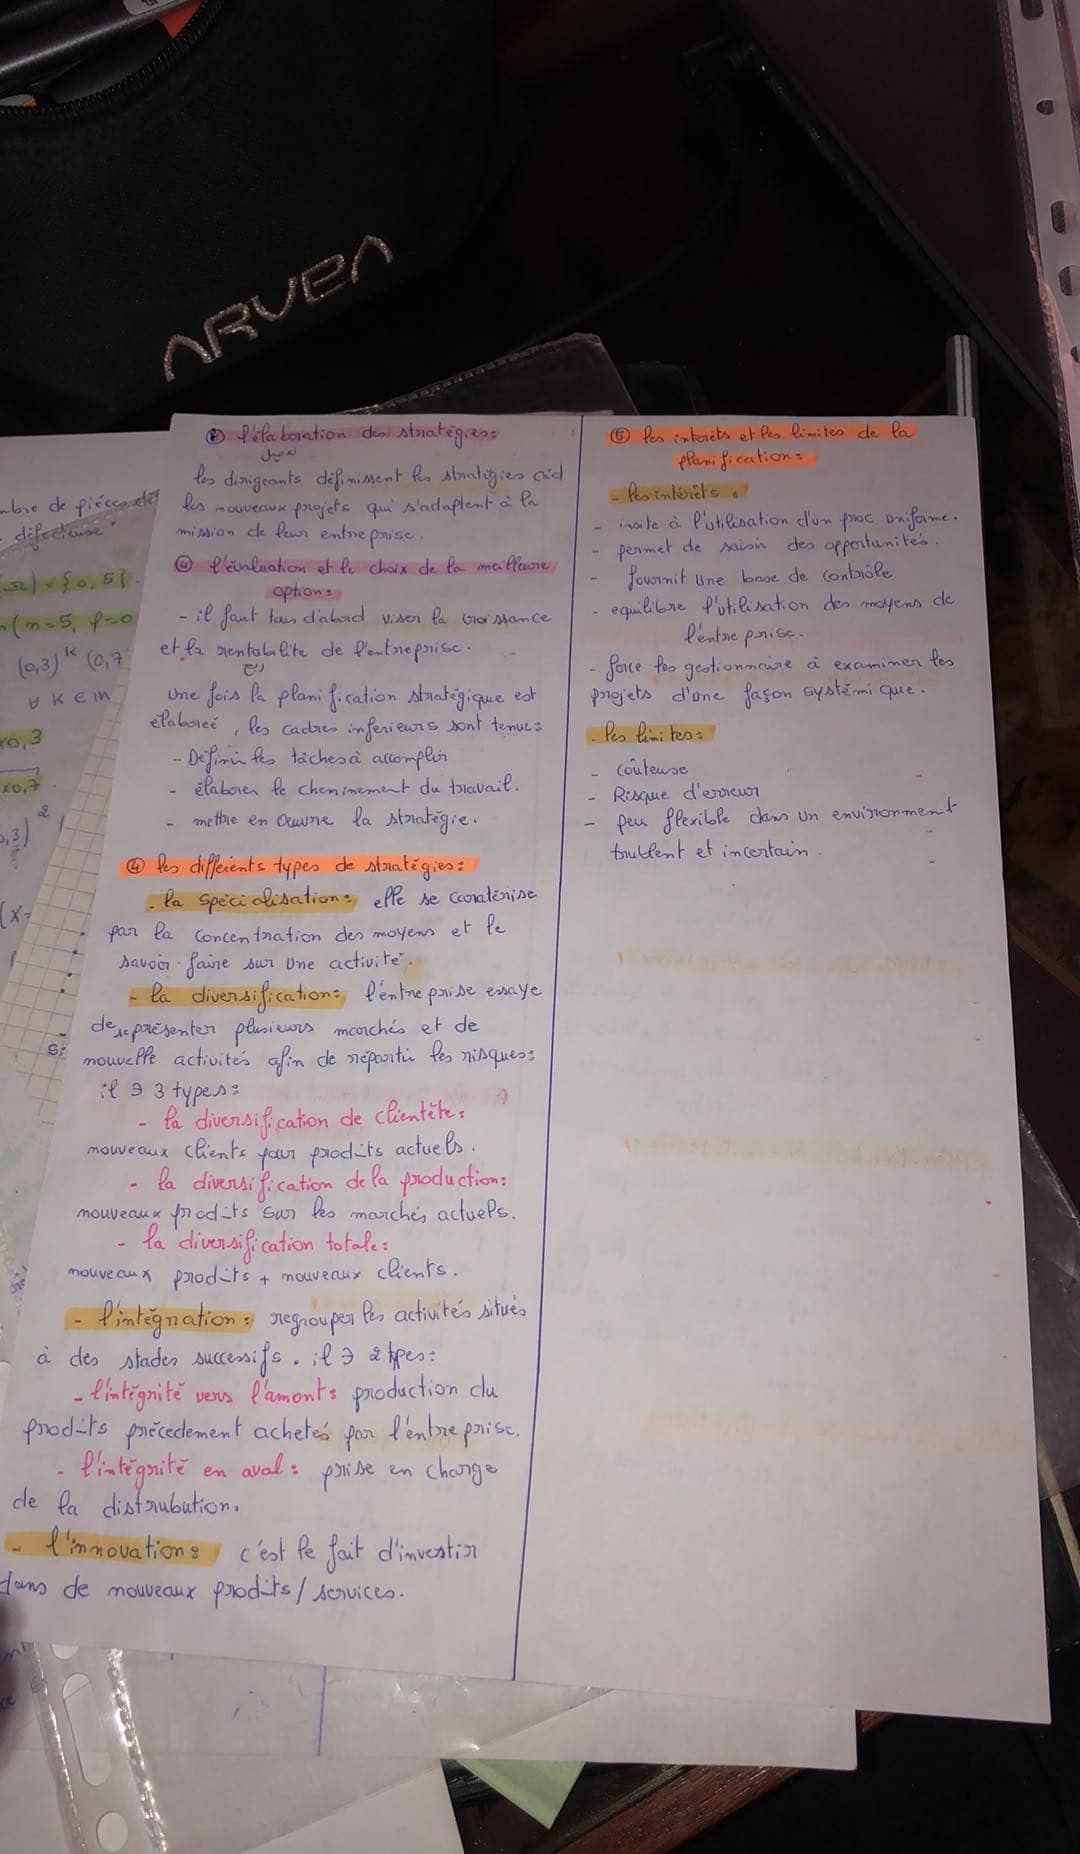 ARVEN
③ l'élaboration des stratégies:
les dirigeants définissent les stratégies càd
les nouveaux projets qui s'adaptent à la
mission de leur entreprise.
④ l'évaluation et le choix de la meilleure
option:
- il faut tous d'abord viser la croissance
et la rentabilite de l'entreprise.
une fois la planification stratégique est
élaboreé, les cadres inferieurs sont tenus:
- Définir les tâches à accomplir
- élaborer le cheminement du travail.
- mettre en Oeuvre la stratégie.
④ les différents types de stratégies:
- la spécialisation: elle se caratérise
par la concentration des moyens et le
savoir-faire sur une activité.
- la diversification: l'entreprise essaye
de représenter plusieurs marchés et de
nouvelle activités afin de répartir les risques:
il ∃ 3 types:
- la diversification de clientéte:
nouveaux clients pour prodits actuels.
- la diversification de la production:
nouveaux prodits sur les marchés actuels.
- la diversification totale:
nouveaux prodits + nouveaux clients.
- l'intégration: regrouper les activités situés
à des stades successifs. il ∃ 2 types:
- l'intégrité vers l'amont: production du
prodits précedement achetés par l'entreprise.
- l'intégrité en aval: prise en charge
de la distrubution.
- l'innovation: c'est le fait d'investir
dans de nouveaux prodits/services.
⑤ les interêts et les limites de la
planification:
- les intérêts:
- incite à l'utilisation d'un proc uniforme.
- permet de saisir des opportunités.
- fournit une base de contrôle
- equilibre l'utilisation des moyens de
l'entreprise.
- force les gestionnaire à examiner les
projets d'une façon systémique.
- les limites:
- coûteuse
- Risque d'erreur
- peu flexible dans un environment
trublent et incertain.
de pièces
défectueuse"
= {0,5}
(n=5, p=0
(0,3)^k (0,7
∀ K ∈ IN
x0,3
x0,7